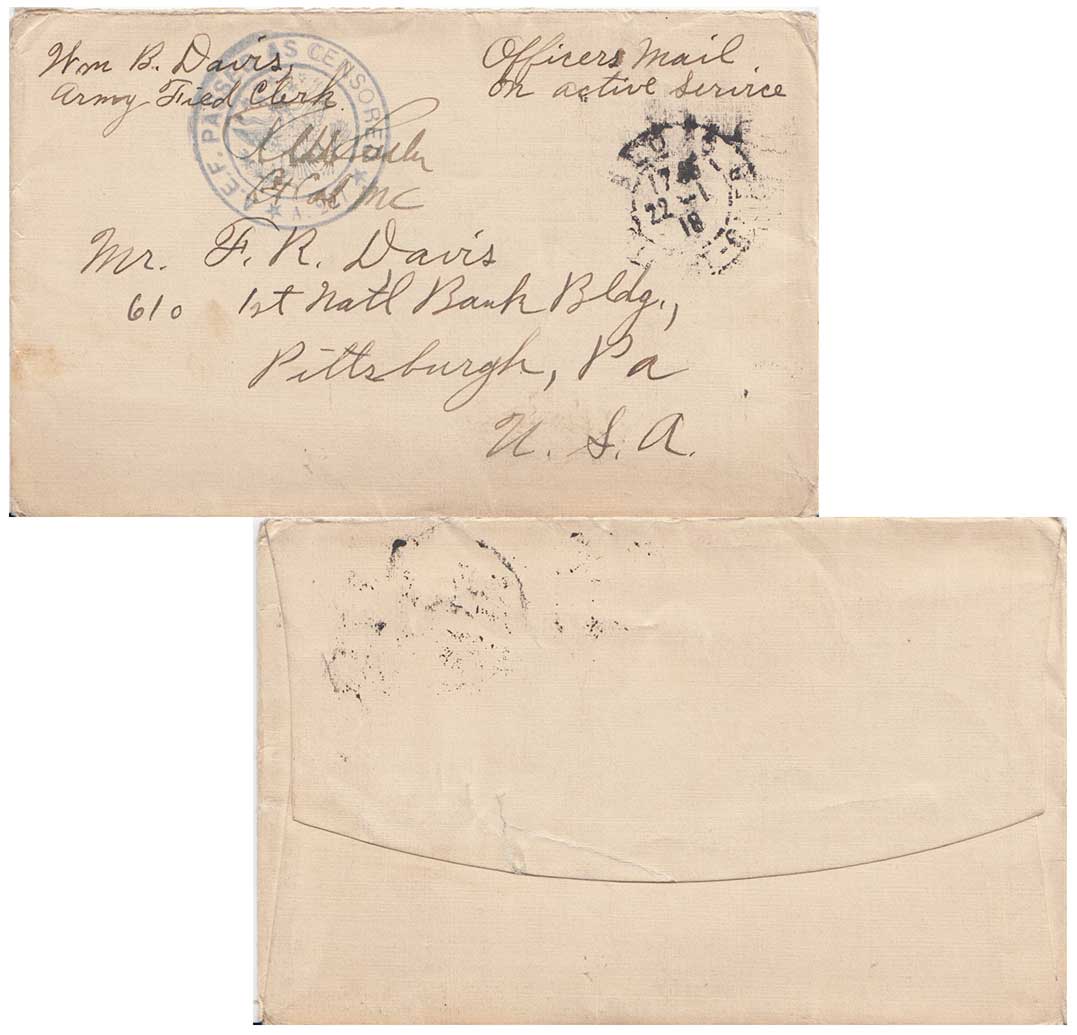 Wm B. Davis,
Army Field Clerk.
Officers Mail
on active service
A.E.F. PASSED AS CENSORED
Lt Col MC
17
22 -1
18
Mr. F. R. Davis
610 1st Natl Bank Bldg.,
Pittsburgh, Pa
U. S. A.